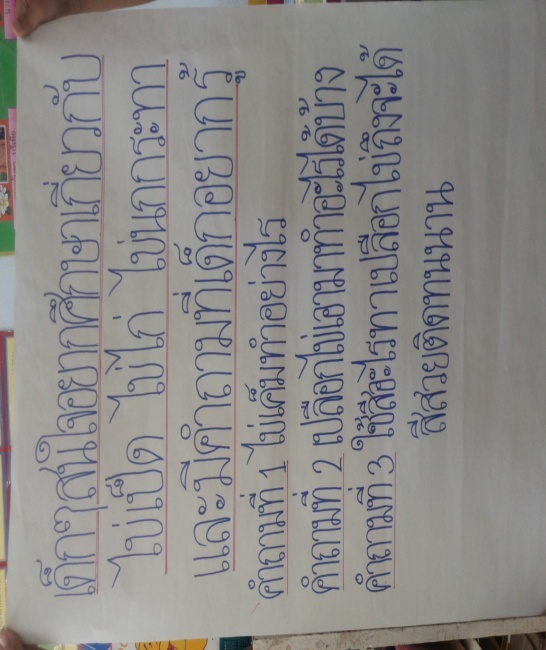 เด็กๆสนใจอยากศึกษาเกี่ยวกับ
ไข่เป็ด ไข่ไก่ ไข่นกกระทา
และมีคำถามที่เด็กอยากรู้
คำถามที่ 1 ไข่เค็มทำอย่างไร
คำถามที่ 2 เปลือกไข่เอามาทำอะไรได้บ้าง
คำถามที่ 3 ใช้สีอะไรทาเปลือกไข่ถึงจะได้
สีสวยติดทนนาน